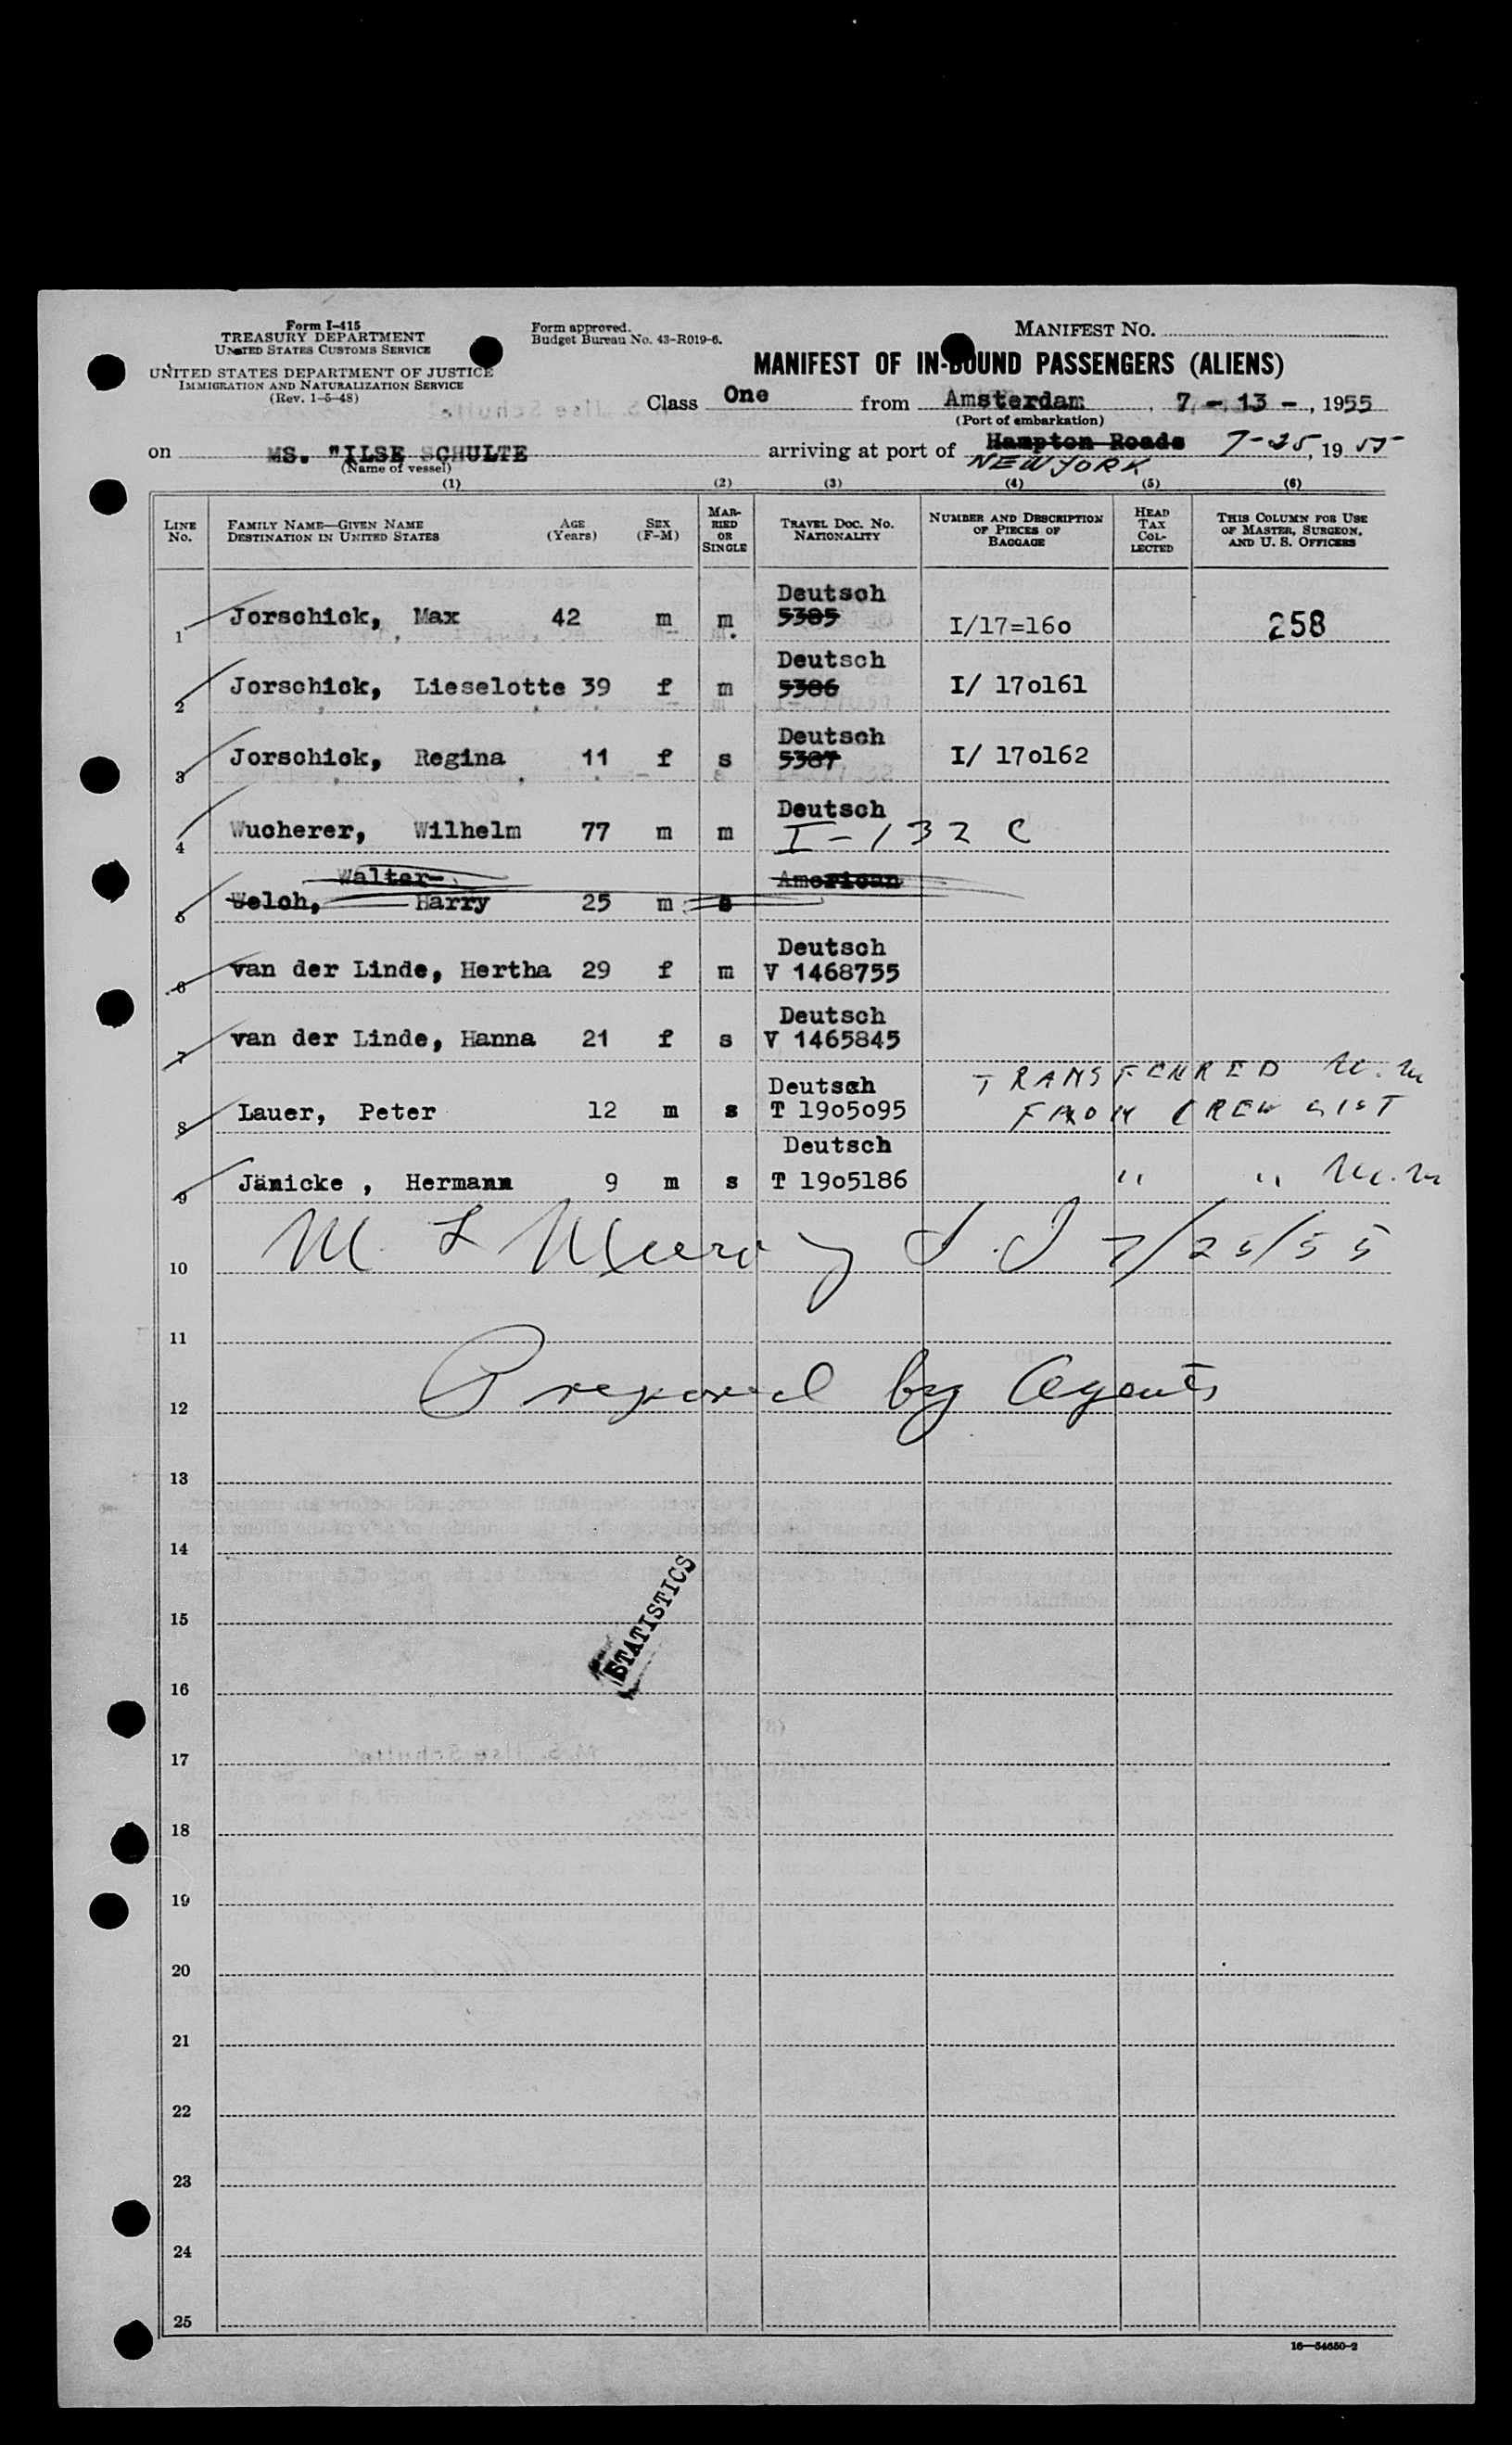 Form I-415
TREASURY DEPARTMENT
UNITED STATES CUSTOMS SERVICE
UNITED STATES DEPARTMENT OF JUSTICE
IMMIGRATION AND NATURALIZATION SERVICE
(Rev. 1-5-48)
Form approved.
Budget Bureau No. 43-R019-6.
MANIFEST NO.
MANIFEST OF IN-BOUND PASSENGERS (ALIENS)
Class One from Amsterdam, 7 - 13 -, 1955
(Port of embarkation)
on MS. "ILSE SCHULTE arriving at port of Hampton Roads 7-25, 19 55
(Name of vessel) NEW YORK
(1) (2) (3) (4) (5) (6)
LINE No. FAMILY NAME—GIVEN NAME DESTINATION IN UNITED STATES AGE (Years) SEX (F-M) MARRIED OR SINGLE TRAVEL DOC. NO. NATIONALITY NUMBER AND DESCRIPTION OF PIECES OF BAGGAGE HEAD TAX COLLECTED THIS COLUMN FOR USE OF MASTER, SURGEON, AND U. S. OFFICERS
Deutsch
1 Jorschick, Max 42 m m 5385 I/17=16o 258
Deutsch
2 Jorschick, Lieselotte 39 f m 5386 I/ 17o161
Deutsch
3 Jorschick, Regina 11 f s 5387 I/ 17o162
Deutsch
4 Wucherer, Wilhelm 77 m m I-132 C
Walter- American
5 Welch, Harry 25 m s
Deutsch
6 van der Linde, Hertha 29 f m V 1468755
Deutsch
7 van der Linde, Hanna 21 f s V 1465845
Deutsch TRANSFERRED
8 Lauer, Peter 12 m s T 19o5o95 FROM CREW LIST
Deutsch
9 Jänicke , Hermann 9 m s T 19o5186 " "
10 M L Murray 7/25/55
11
12 Prepared by Agents
13
14
15
STATISTICS
16
17
18
19
20
21
22
23
24
25
16—54650-2